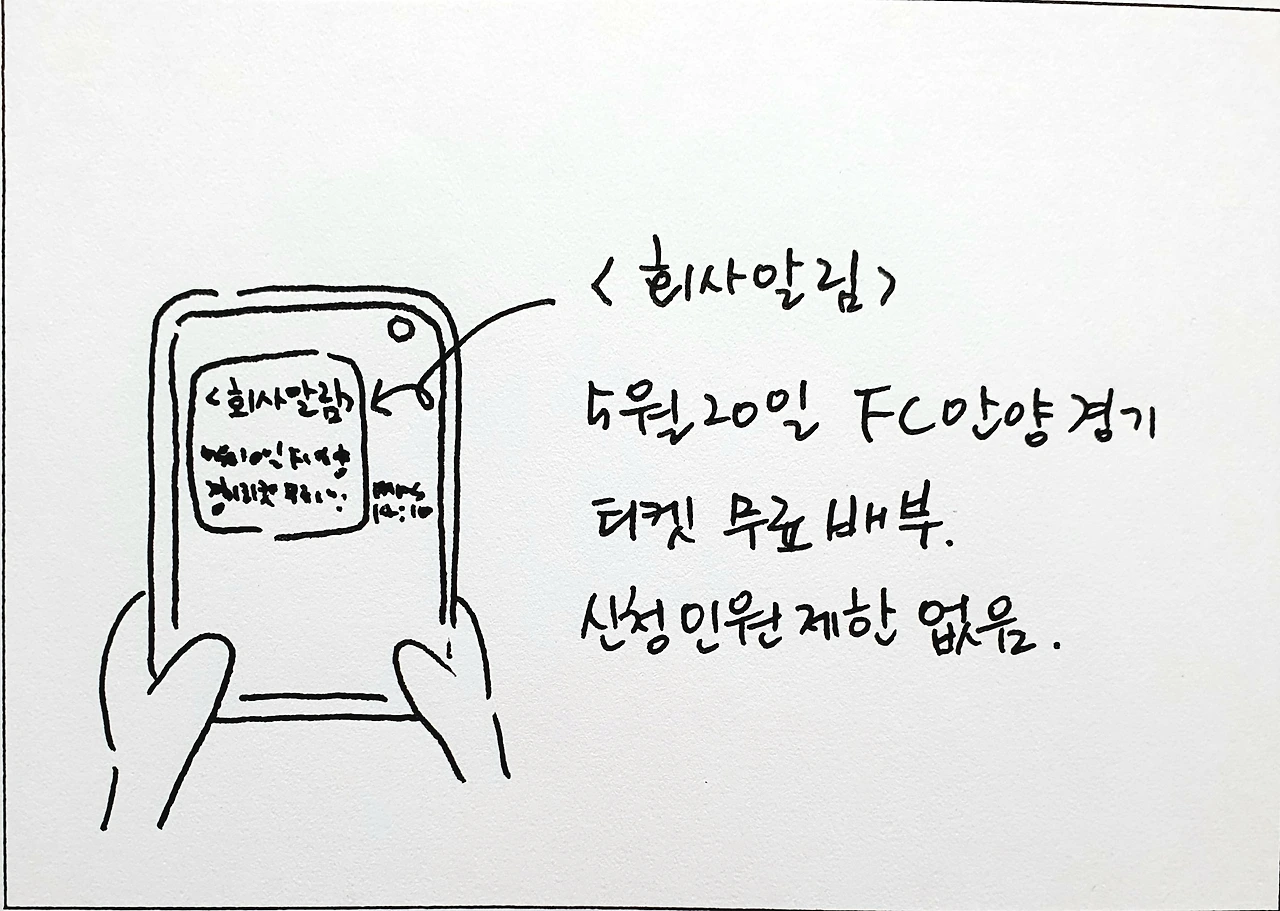 <회사알림>
5월20일 FC안양경기
티켓 무료배부.
신청인원제한 없음.
<회사알림>
MMS